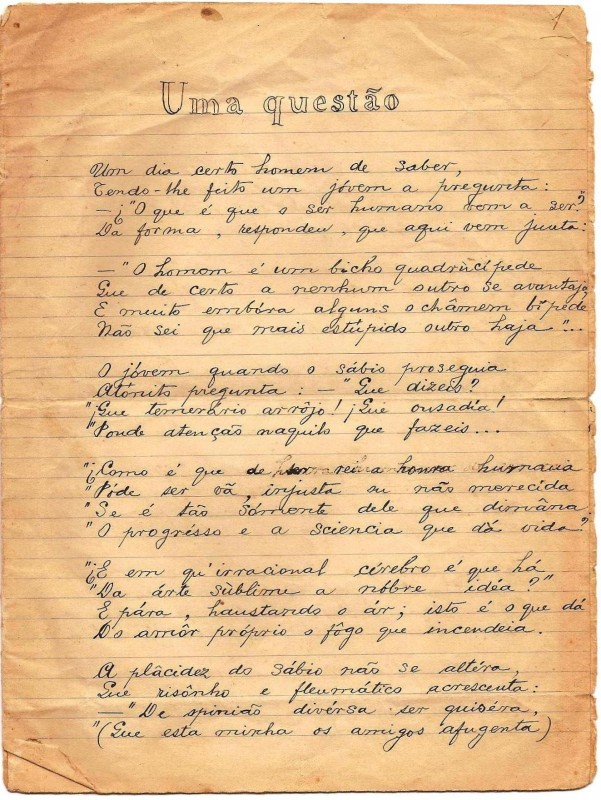 1
Uma questão
Um dia certo homem de saber,
Tendo-lhe feito um jóvem a pregunta:
—¡"O que é que o ser humano vem a ser?
Da forma, respondeu, que aqui vem junta:
—"O homem é um bicho quadrùcípede
Que de certo a nenhum outro se avantaja,
E muito embóra alguns o châmem bípede
Não sei que mais estúpido outro haja"...
O jóvem quando o sábio proseguia
Atónito pregunta: —"Que dizeis?
"¡Que temerário arrôjo! ¡Que ousadia!
"Ponde atenção naquilo que fazeis...
"¿Como é que de ser rei a honra humana
"Póde ser vã, injusta ou não merecida
"Se é tão sómente dele que dimâna
"O progrésso e a sciencia que dá vida?
"¿E em qu'irracional cérebro é que há
"Da árte sùblime a nóbre idéa?"
E pára, haustando o ár; isto é o que dá
Do amôr próprio o fôgo que incendeia.
A plàcidez do sábio não se altéra,
Que risônho e fleumático acrescenta:
—"De opinião divérsa ser quiséra,
"(Que esta minha os amigos afugenta)